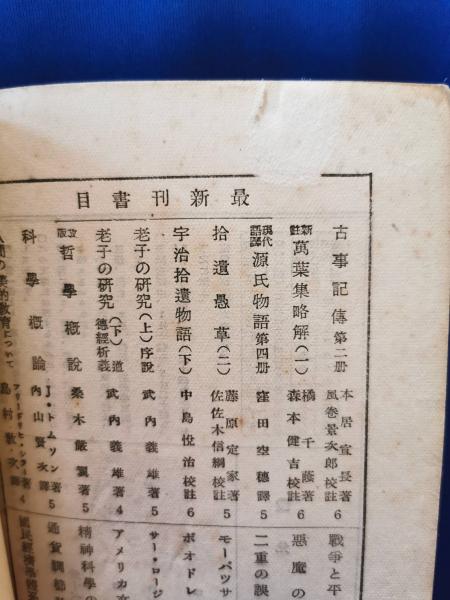 最新刊書目
古事記傳 第二册 本居宣長著 風卷景次郎校註 6
新註 萬葉集略解(一) 橘千蔭著 森本健吉校註 6
現代語譯 源氏物語 第四册 窪田空穗譯 5
拾遺愚草(二) 藤原定家著 佐佐木信綱校註 5
宇治拾遺物語(下) 中島悅治校註 6
老子の研究(上)序說 武內義雄著 5
老子の研究(下)道德經析義 武內義雄著 4
改版 哲學概說 桑木嚴翼著 5
科學概論 J・トムソン著 內山賢次譯 5
人間の美的教育について フリードリヒ・シラー著 島村敎次譯 4
戰爭と平
惡魔の
二重の誤
モーパツサ
ボオドレ
サー・ロージ
アメリカ文
精神科學の
通貨調節
國民經濟學